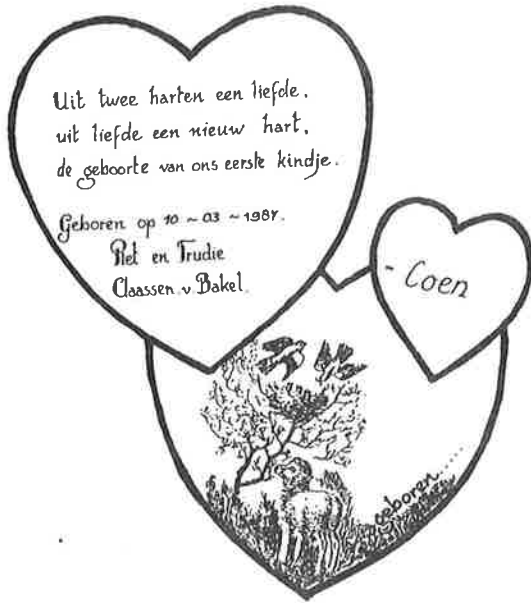 Uit twee harten een liefde,
uit liefde een nieuw hart,
de geboorte van ons eerste kindje.
Geboren op 10 ~ 03 ~ 1987.
Piet en Trudie
Claassen v. Bakel.
- Coen
geboren......